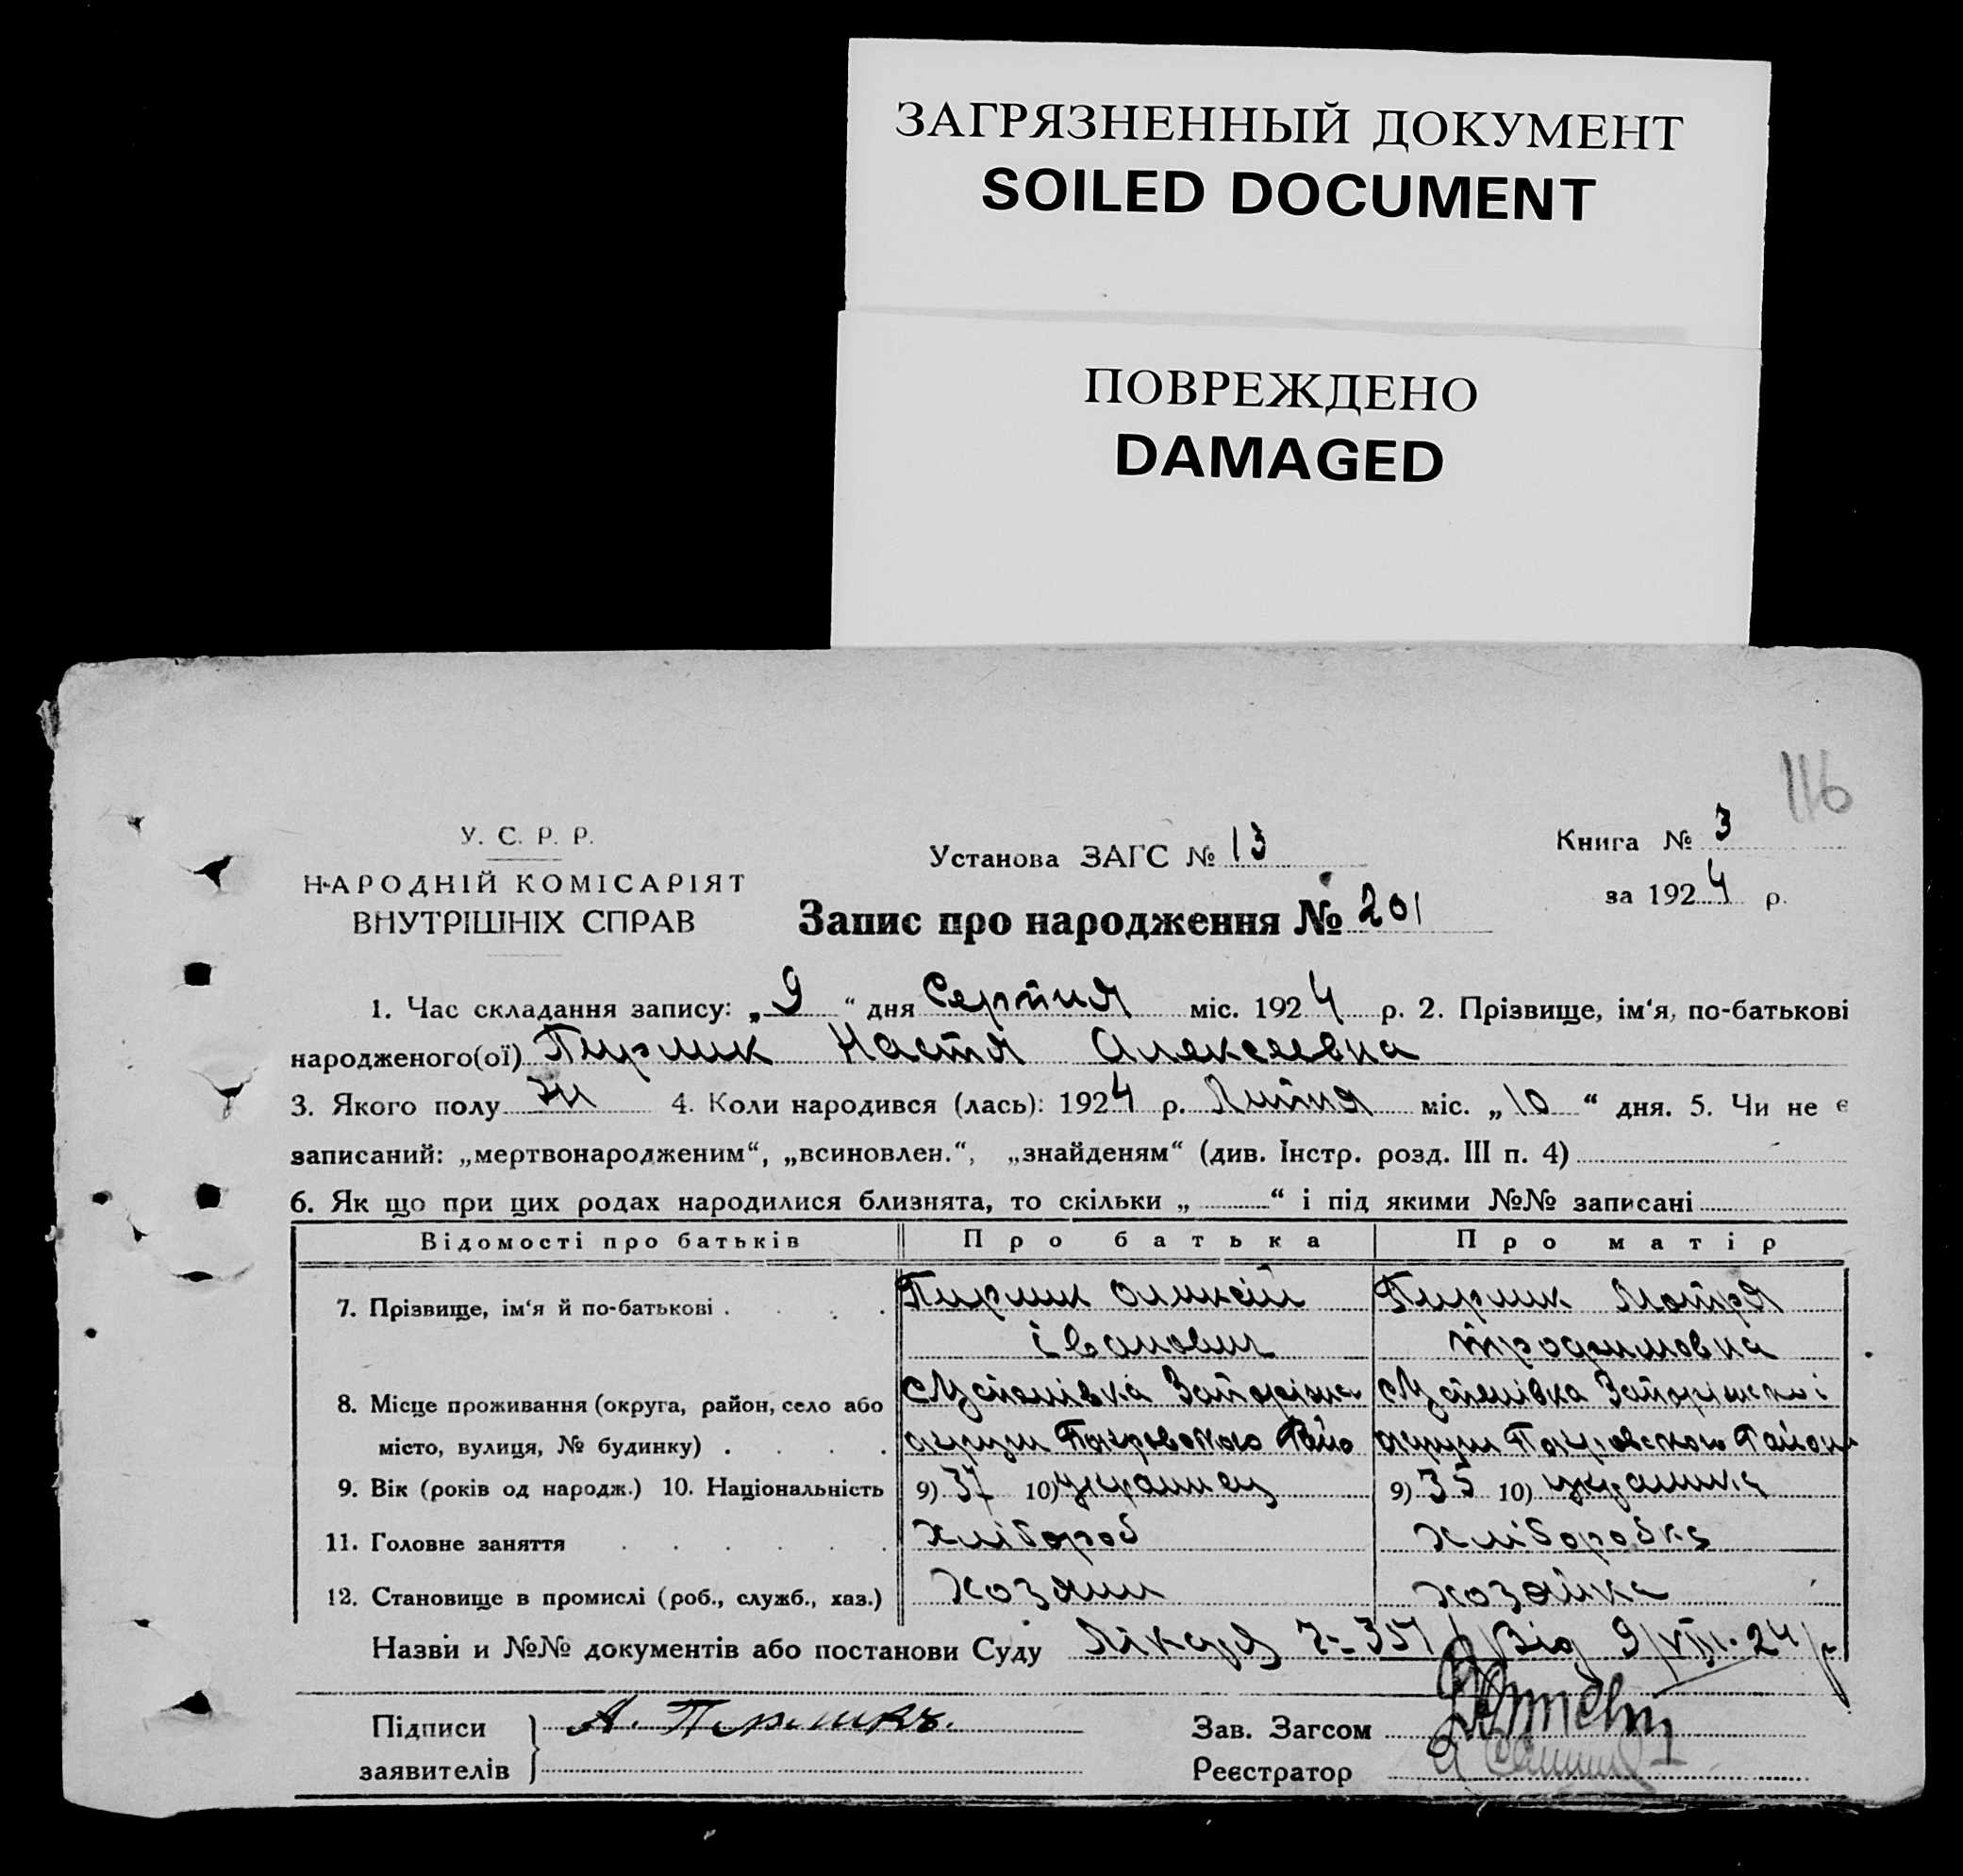 ЗАГРЯЗНЕННЫЙ ДОКУМЕНТ
SOILED DOCUMENT
ПОВРЕЖДЕНО
DAMAGED
116
У. С. Р. Р.
НАРОДНІЙ КОМІСАРІЯТ
ВНУТРІШНІХ СПРАВ
Установа ЗАГС № 13
Книга № 3
за 1924 р.
Запис про народження № 201
1. Час складання запису: „9“ дня Серпня міс. 1924 р. 2. Прізвище, ім‘я, по-батькові
народженого(ої) Пирлик Настя Алексеевна
3. Якого полу жи 4. Коли народився (лась): 1924 р. Липня міс. „10“ дня. 5. Чи не є
записаний: „мертвонародженим“, „всиновлен.“, „знайденям“ (див. Інстр. розд. III п. 4)
6. Як що при цих родах народилися близнята, то скільки „ “ і під якими №№ записані
Відомості про батьків Про батька Про матір
7. Прізвище, ім‘я й по-батькові . . . Пирлик Олексій Пирлик Мотря
Іванович Трофимовна
8. Місце проживання (округа, район, село або
місто, вулиця, № будинку) . . . . округи Покровского Райо округи Покровского Району
9. Вік (років од народж.) 10. Національність 9) 37 10) украинец 9) 35 10) украинка
11. Головне заняття . . . . . . хлібороб хліборобка
12. Становище в промислі (роб., служб., хаз.) хозяин хозяйка
Назви и №№ документів або постанови Суду Лікаря Від 9/VIII. 24 р
Підписи
заявителів
А. Пирликъ.
Зав. Загсом
Реєстратор